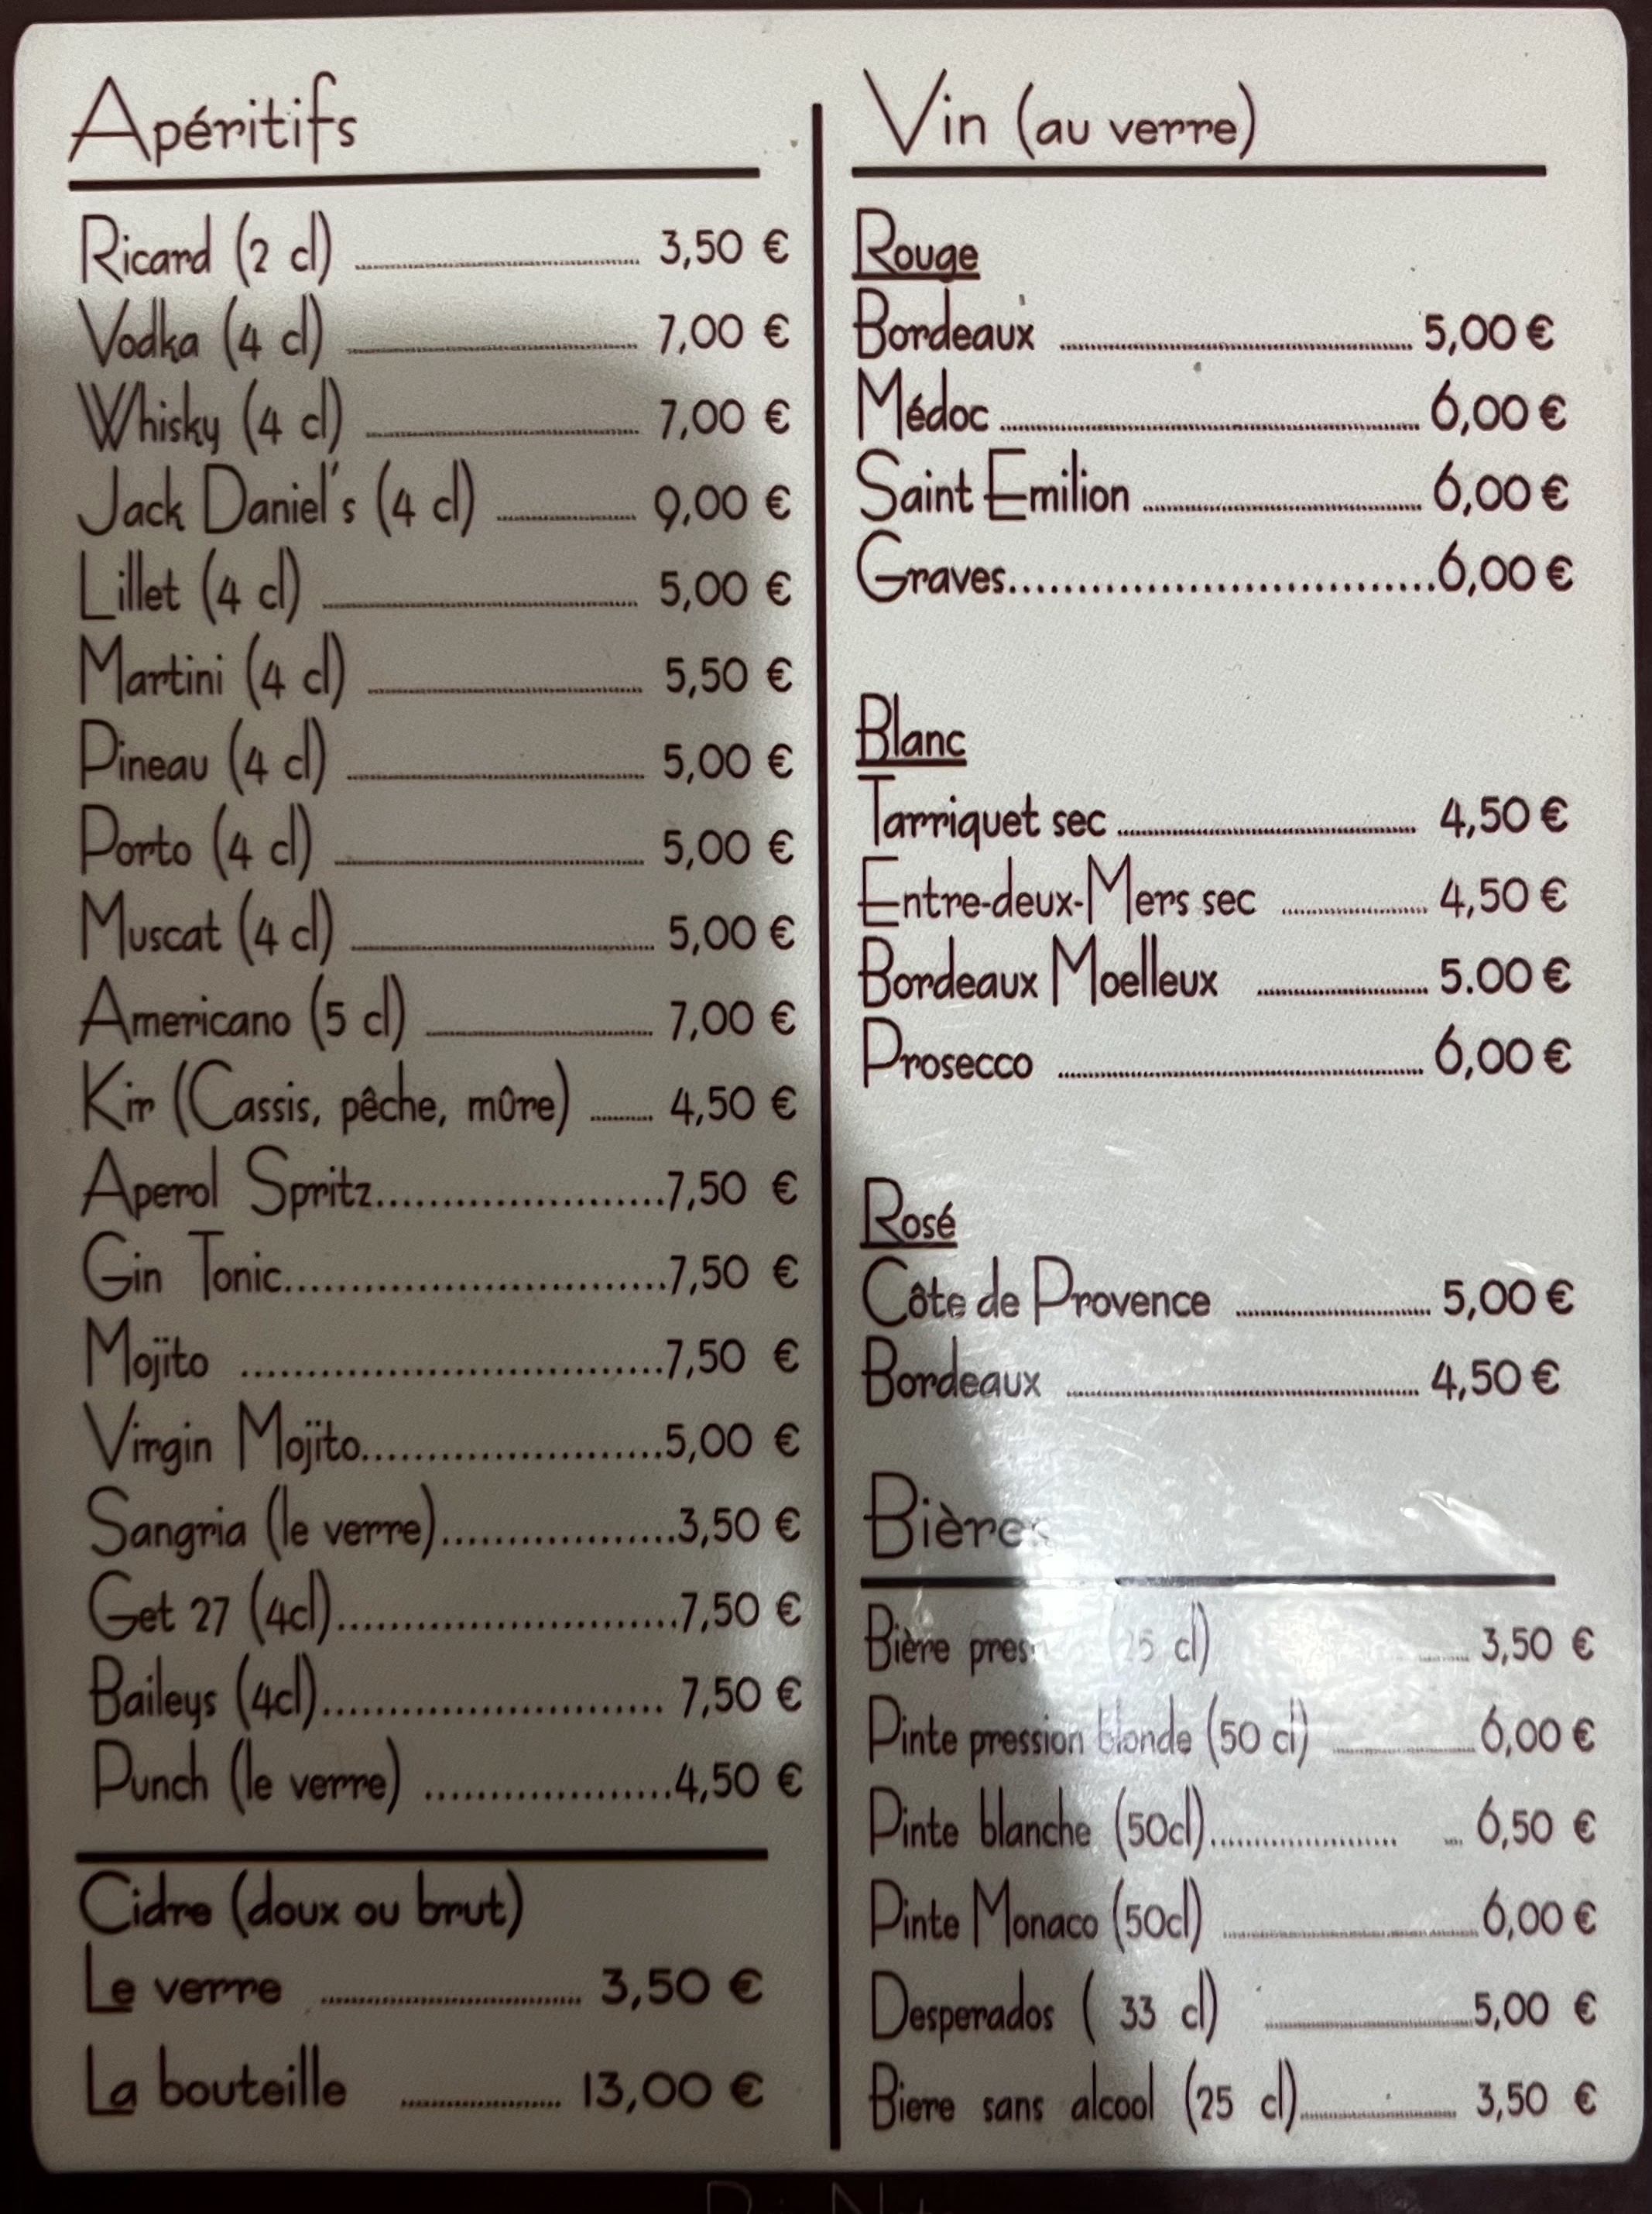 Apéritifs
Ricard (2 cl) ........ 3,50 €
Vodka (4 cl) ........ 7,00 €
Whisky (4 cl) ........ 7,00 €
Jack Daniel's (4 cl) ........ 9,00 €
Lillet (4 cl) ........ 5,00 €
Martini (4 cl) ........ 5,50 €
Pineau (4 cl) ........ 5,00 €
Porto (4 cl) ........ 5,00 €
Muscat (4 cl) ........ 5,00 €
Americano (5 cl) ........ 7,00 €
Kir (Cassis, pêche, mûre) ........ 4,50 €
Aperol Spritz........7,50 €
Gin Tonic........7,50 €
Mojïto ........7,50 €
Virgin Mojïto........5,00 €
Sangria (le verre)........3,50 €
Get 27 (4cl)........7,50 €
Baileys (4cl)........ 7,50 €
Punch (le verre) ........4,50 €
Cidre (doux ou brut)
Le verre ........ 3,50 €
La bouteille ........ 13,00 €
Vin (au verre)
Rouge
Bordeaux ........ 5,00 €
Médoc ........ 6,00 €
Saint Emilion ........ 6,00 €
Graves........6,00 €
Blanc
Tarriquet sec ........ 4,50 €
Entre-deux-Mers sec ........ 4,50 €
Bordeaux Moelleux ........ 5.00 €
Prosecco ........ 6,00 €
Rosé
Côte de Provence ........ 5,00 €
Bordeaux ........ 4,50 €
Bières
Bière (25 cl) ........ 3,50 €
Pinte pression blonde (50 cl) ........ 6,00 €
Pinte blanche (50cl)........ 6,50 €
Pinte Monaco (50cl) ........ 6,00 €
Desperados ( 33 cl) ........ 5,00 €
Biere sans alcool (25 cl)........ 3,50 €